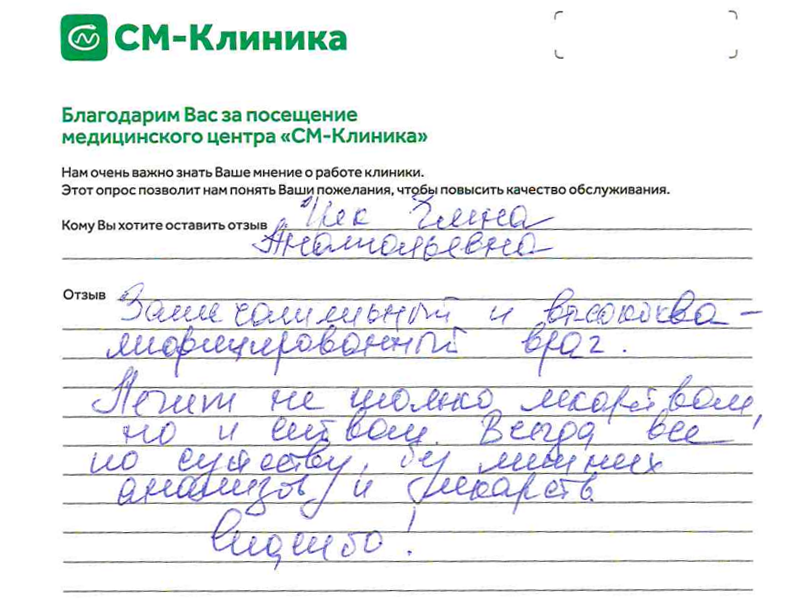 СМ-Клиника
Благодарим Вас за посещение
медицинского центра «СМ-Клиника»
Нам очень важно знать Ваше мнение о работе клиники.
Этот опрос позволит нам понять Ваши пожелания, чтобы повысить качество обслуживания.
Кому Вы хотите оставить отзыв
Анатольевна
Отзыв Замечательный и высококва-
лифицированный враг.
Лечит не только лекарством,
но и словом. Всегда все
по существу, без лишних
анализов и лекарств.
Спасибо!